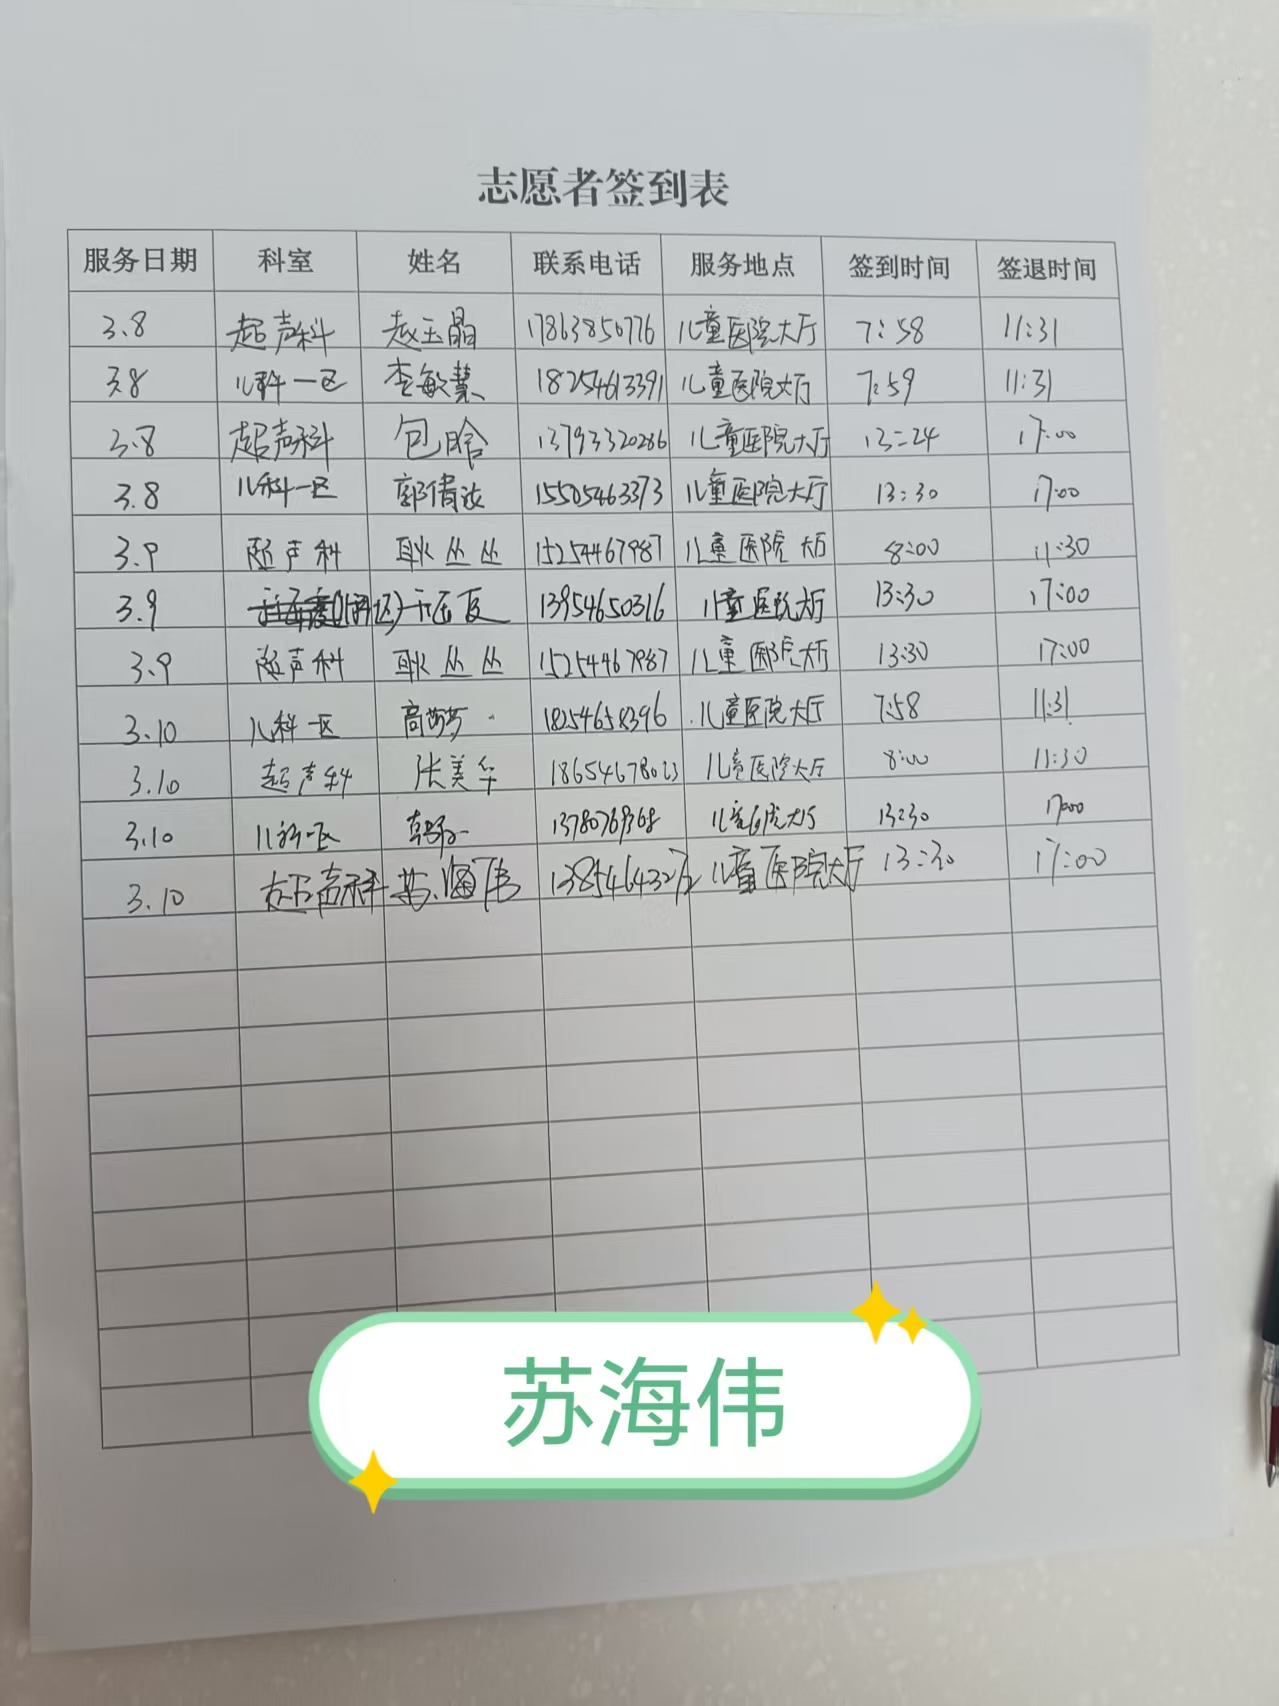 志愿者签到表
服务日期 科室 姓名 联系电话 服务地点 签到时间 签退时间
3.8 超声科 赵玉晶 17863850776 儿童医院大厅 7:58 11:31
3.8 儿科一区 李敏慧 18254613391 儿童医院大厅 7:59 11:31
3.8 超声科 包晗 13793320286 儿童医院大厅 13:24 17:00
3.8 儿科一区 郭倩 15505463373 儿童医院大厅 13:30 17:00
3.9 超声科 耿丛丛 15254467987 儿童医院大厅 8:00 11:30
3.9 13954650316 儿童医院大厅 13:30 17:00
3.9 超声科 耿丛丛 15254467987 儿童医院大厅 13:30 17:00
3.10 儿科一区 高 18254658396 儿童医院大厅 7:58 11:31
3.10 超声科 张美华 儿童医院大厅 8:00 11:30
3.10 儿科一区 儿童医院大厅 13:30 17:00
3.10 超声科 苏海伟 儿童医院大厅 13:30 17:00
苏海伟